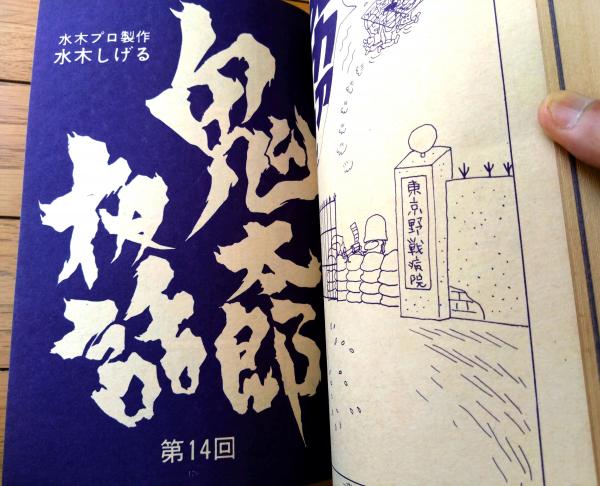 水木プロ製作
水木しげる
鬼太郎
夜話
第14回
東京野戦病院